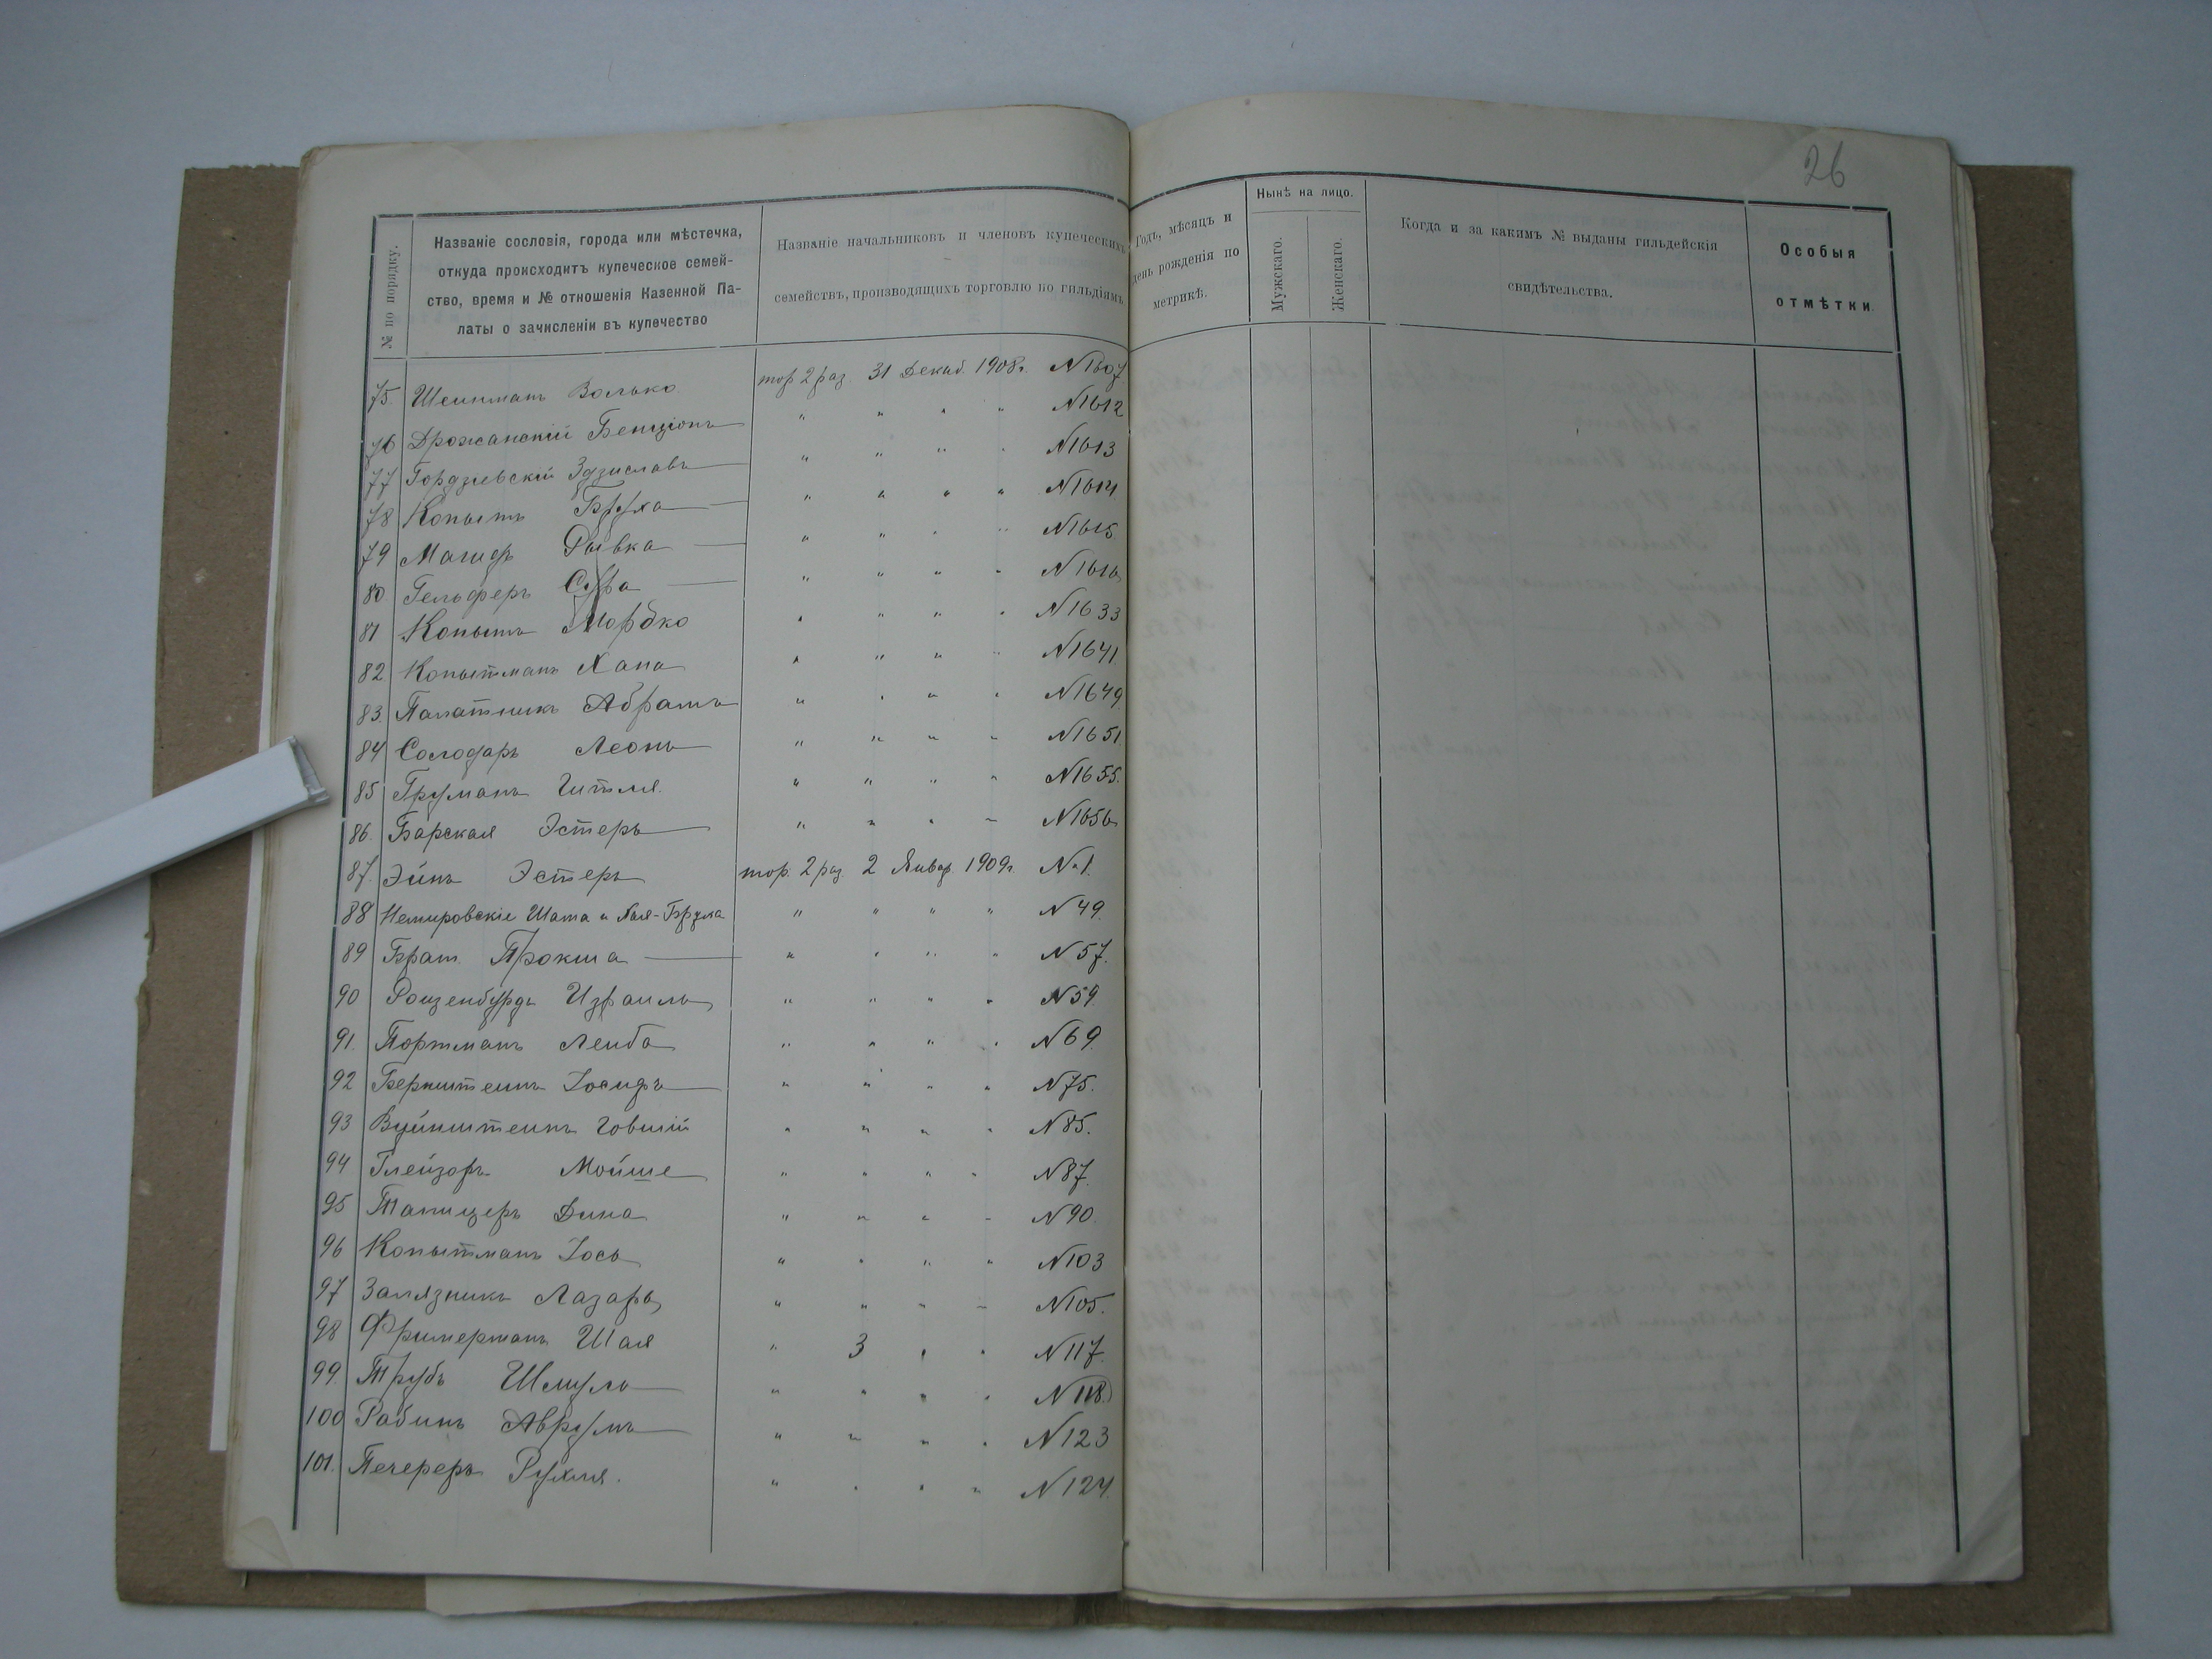 26
№ по порядку.
Названіе сословія, города или мѣстечка,
откуда происходитъ купеческое семей-
ство, время и № отношенія Казенной Па-
латы о зачисленіи въ купечество
Названіе начальниковъ и членовъ купеческихъ
семействъ, производящихъ торговлю по гильдіямъ
Годъ, мѣсяцъ и
день рожденія по
метрикѣ.
Нынѣ на лицо.
Мужскаго.
Женскаго.
Когда и за какимъ № выданы гильдейскія
свидѣтельства.
Особыя
отмѣтки.
75. Шейнманъ Волько тор 2 раз 31 Декаб. 1908 г. N 1607
76 Дрожанскій Бенціонъ " " " " N 1612
77 Гордзіевскій Здзиславъ " " " " N 1613
78 Копытъ Бруха " " " " N 1614
79 Магидъ Рывка " " " " N 1615
80. Гельферъ Сура " " " " N 1616
81 Копытъ Мордко " " " " N 1633
82 Копытманъ Хана " " " " N 1641
83. Палатникъ Абрамъ " " " " N 1649
84 Солодарь Леонъ " " " " N 1651
85 Груманъ Гитля. " " " " N 1655.
86. Барская Эстеръ " " " " N 1656
87. Эйнъ Эстеръ тор. 2 раз 2 Январ. 1909 г. N 1.
88 Немировскіе Шама и Хая-Брума " " " " N 49.
89 Брат. Прокша " " " " N 57.
90 Розенбурдъ Израиль " " " " N 59
91. Портманъ Лейба " " " " N 69.
92 Бернштейнъ Іосифъ " " " " N 75.
93 Вуйнштейнъ Говшій " " " " N 85.
94 Глейзоръ Мойше " " " " N 87.
95 Тапицеръ Дина " " " " N 90.
96 Копытманъ Іось " " " " N 103
97 Залязникъ Лазарь " " " " N 105.
98 Фримерманъ Шая " 3 " " N 117.
99. Трубъ Шмуль " " " " N 118.
100 Рабинъ Аврумъ " " " " N 123
101. Печереръ Рухля. " " " " N 124.